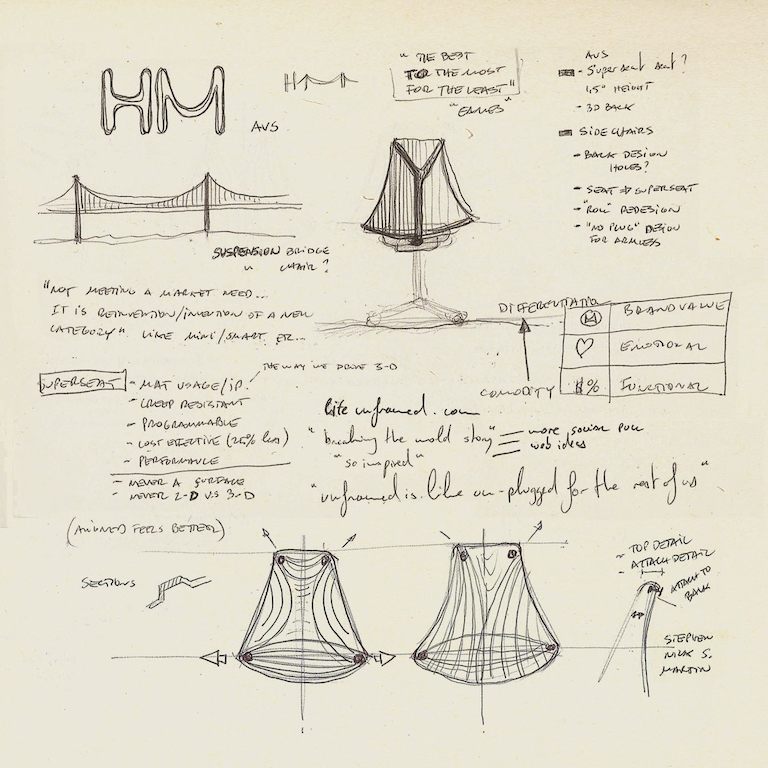 HM
AVS
HM
"THE BEST
FOR THE MOST
FOR THE LEAST"
"EAMES"
AVS
- Superseat seat?
1,5" HEIGHT
- 3D BACK
SIDE CHAIRS
- BACK DESIGN
HOLES?
- SEAT SUPERSEAT
- REDESIGN
- "NO PLUG" DESIGN
FOR ARMLESS
SUSPENSION BRIDGE
" CHAIR?
"NOT MEETING A MARKET NEED...
IT IS REINVENTION/INVENTION OF A NEW
CATEGORY" LIKE MINI/SMART, ETC...
DIFFERENTIATION
COMODITY
M BRAND VALUE
EMOTIONAL
$% FUNCTIONAL
SUPERSEAT
- MAT USAGE/IP.
THE WAY WE DRIVE 3-D
- CREEP RESISTANT
- PROGRAMMABLE
- COST EFFECTIVE (25% less)
- PERFORMANCE
- NEVER A SURFACE
- NEVER 2-D V.S 3-D
life unframed.com
"breaking the mold story"
more social
web ideas
"so inspired"
"unframed is like un-plugged for the rest of us"
(ALIGNED FEELS BETTER)
SECTIONS
- TOP DETAIL
- ATTACH DETAIL
ATTACH TO
BACK
STEPHEN
NICK S.
MARTIN